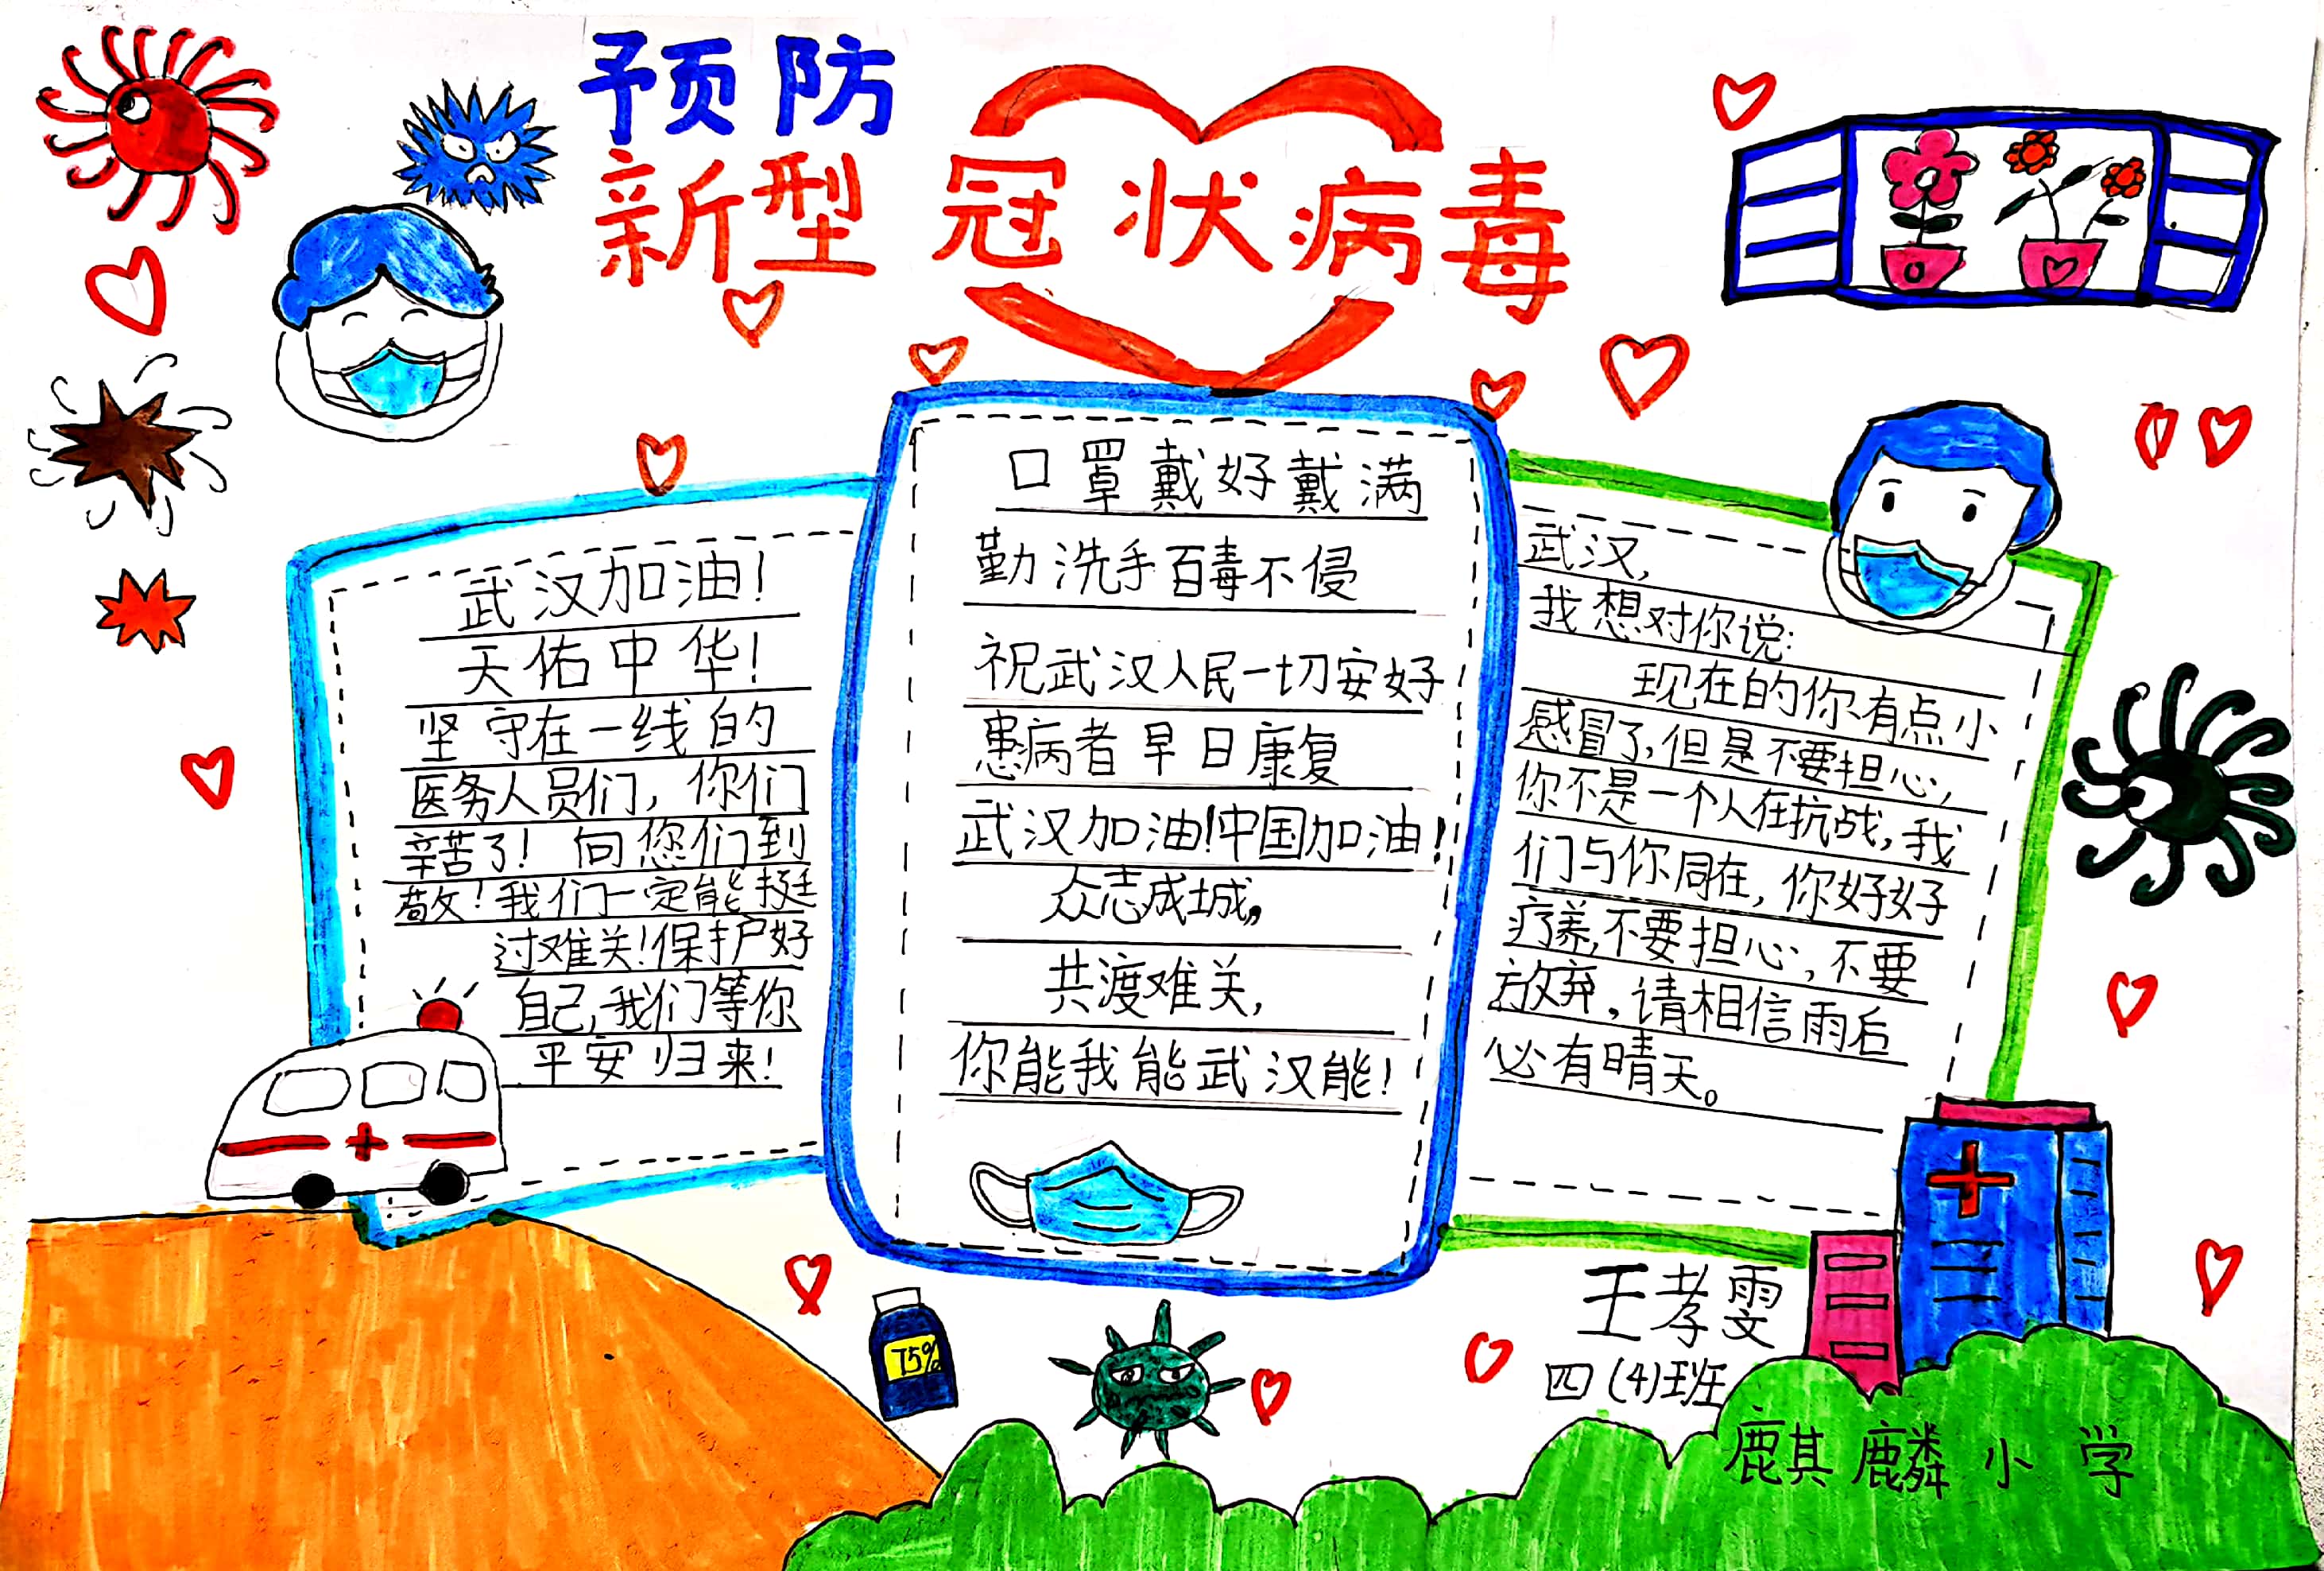 预防
新型冠状病毒
武汉加油！
天佑中华！
坚守在一线的
医务人员们，你们
辛苦了！向您们到
敬！我们一定能挺
过难关！保护好
自己，我们等你
平安归来！
口罩戴好戴满
勤洗手百毒不侵
祝武汉人民一切安好
患病者早日康复
武汉加油！中国加油！
众志成城，
共渡难关，
你能我能武汉能！
武汉，
我想对你说：
现在的你有点小
感冒了，但是不要担心，
你不是一个人在抗战，我
们与你同在，你好好
疗养，不要担心，不要
放弃，请相信雨后
必有晴天。
75%
王孝雯
四（4）班
麒麟小学